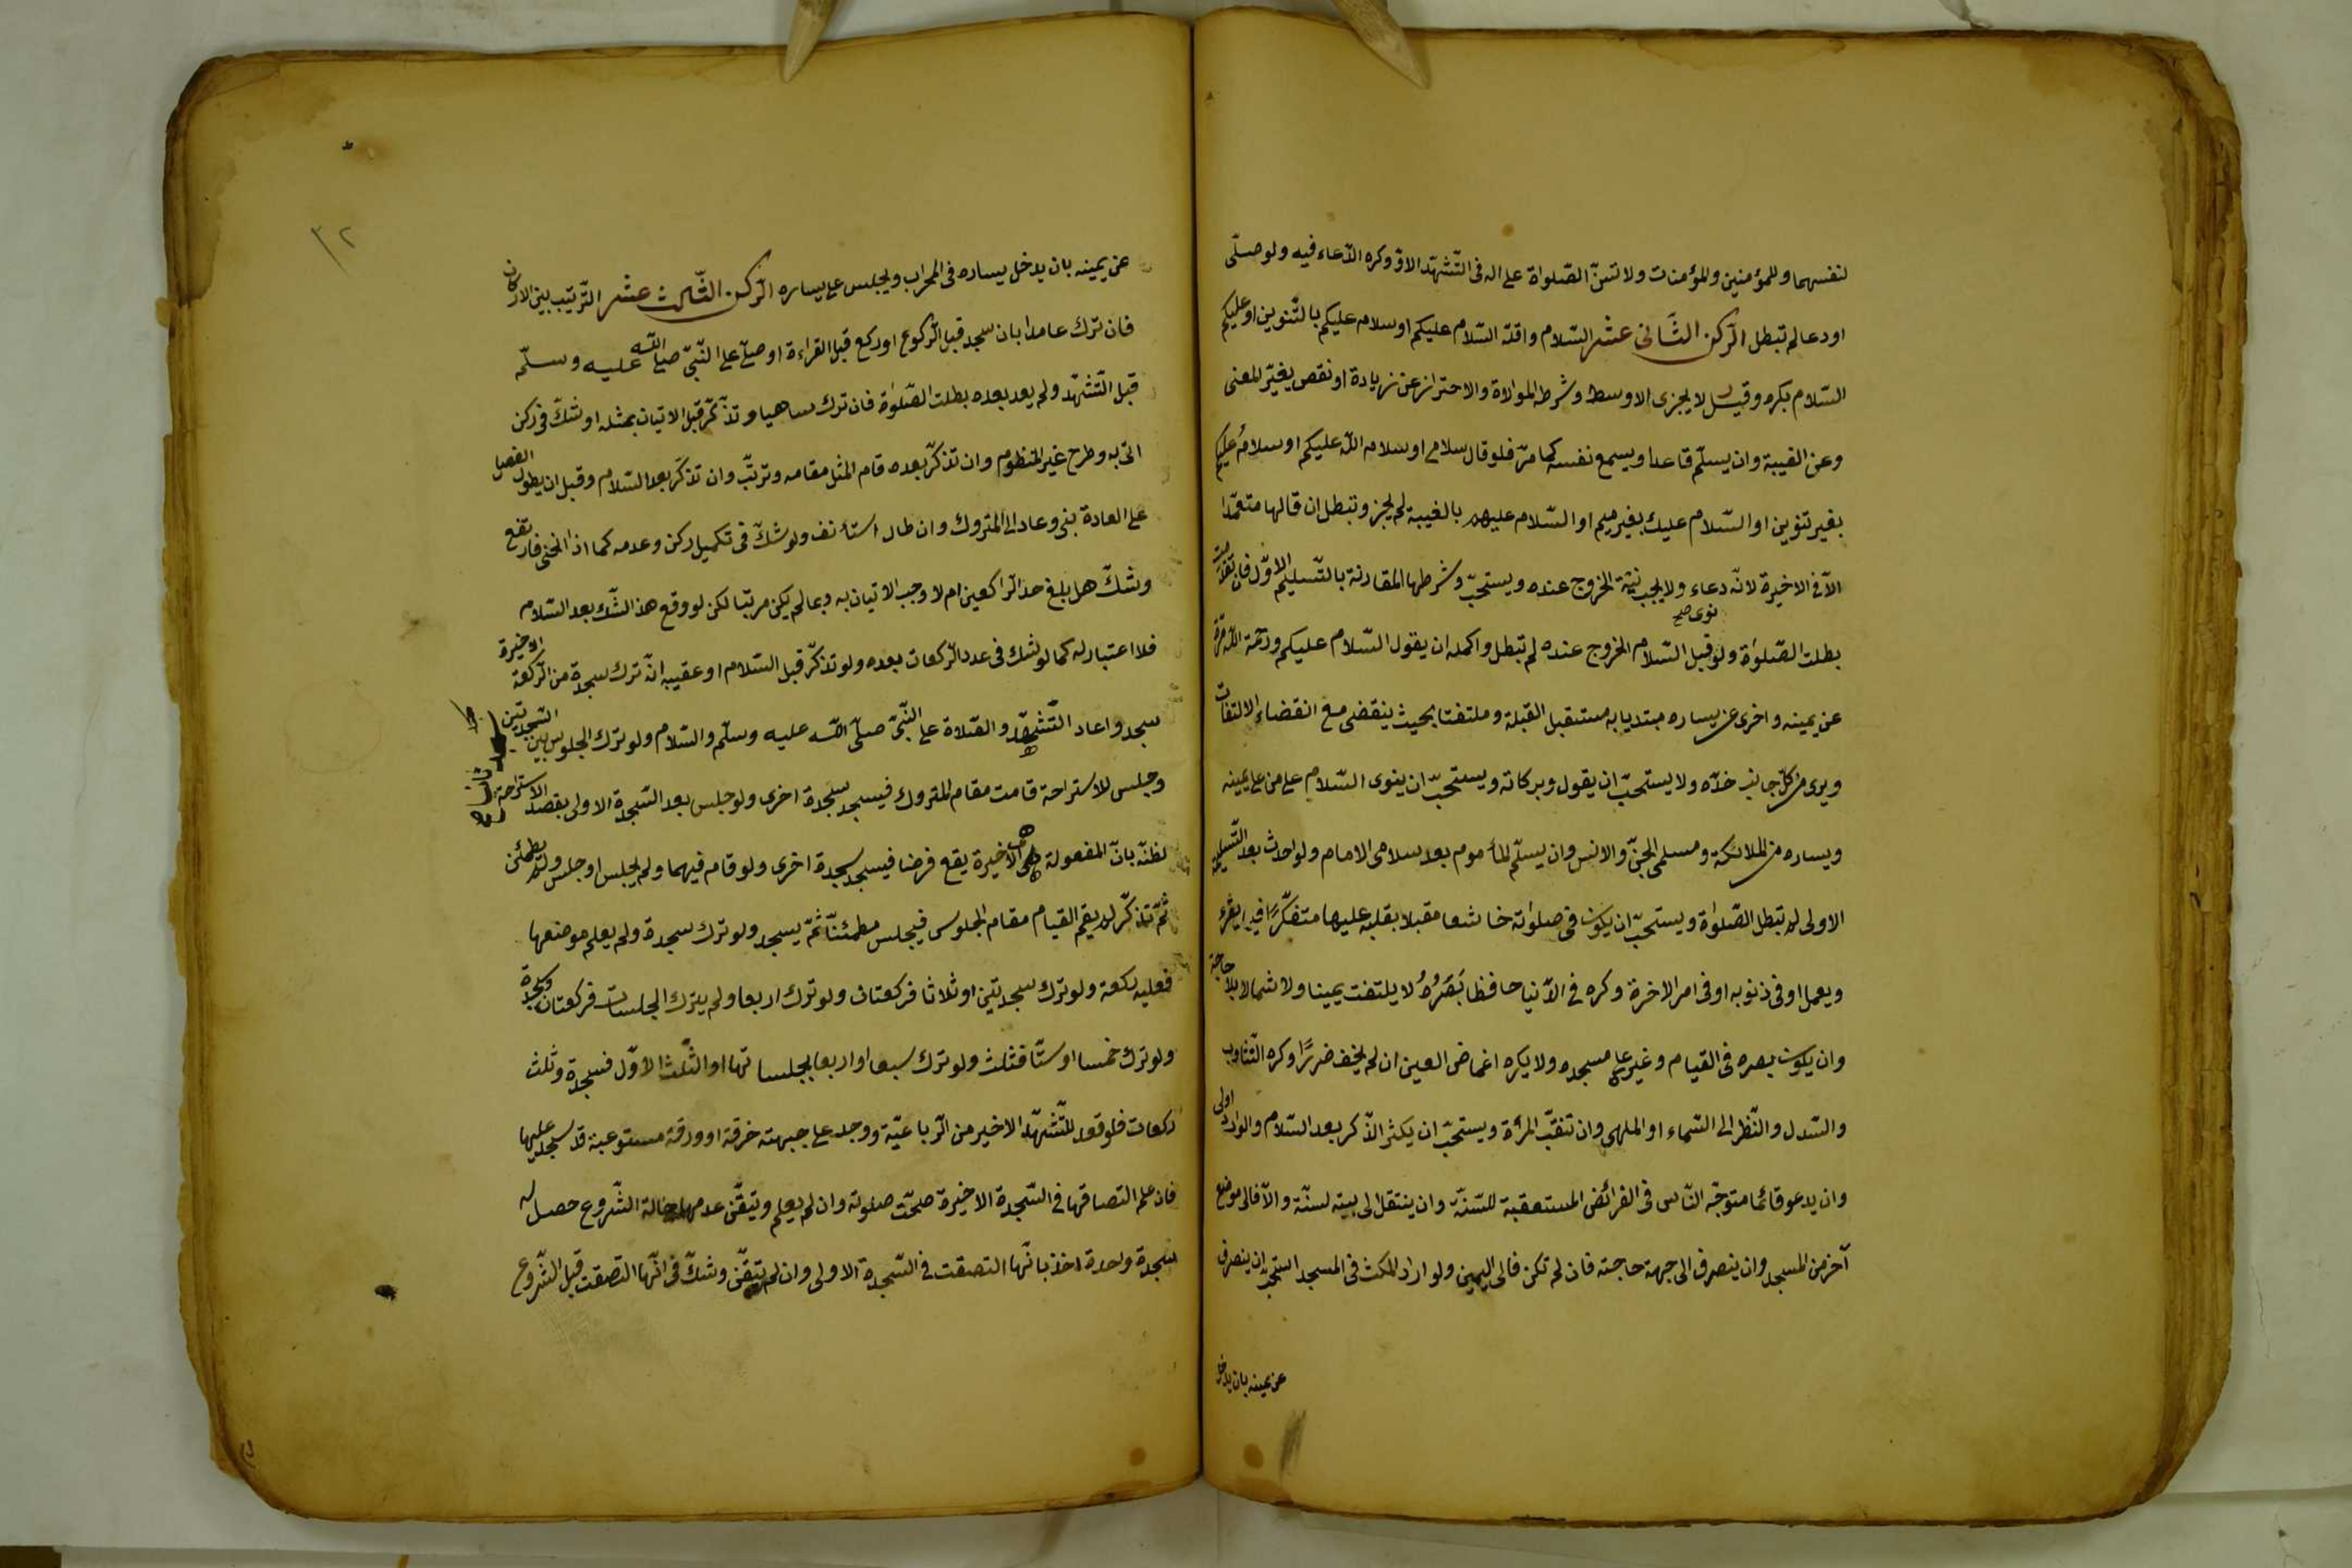 لنفسهما وللمؤمنين والمؤمنات ولا تسنّ الصّلواة على اله فى التّشهّد الاوّل وكره الدّعاء فيه ولو صلّى
او دعا لم تبطل الرّكن الثّانى عشر السّلام واقلّه السّلام عليكم او سلام عليكم بالتّنوين او عليكم
السّلام بكره وقيل لا يجزى الاوسط وشرطه الموالاة والاحتراز عن زيادة او نقص يغيّر المعنى
وعن الغيبة وان يسلّم قاعدا ويسمع نفسه كما مرّ فلو قال سلامى او سلام اللّه عليكم او سلامُ عليكم
بغير تنوين او السّلام عليك بغير ميم او السّلام عليهم بالغيبة لم يجز وتبطل ان قالها متعمّدا
الّا فى الاخيرة لانّه دعاء ولا يجب نيّة الخروج عنده ويستحبّ وشرطها المقارنة بالتّسليم الاوّل فان تقدّمت
بطلت الصّلواة ولو نوى صح قبل السّلام الخروج عنده لم تبطل واكمله ان يقول السّلام عليكم ورحمة اللّه مرّة
عن يمينه واخرى عن يساره مبتديا به مستقبل القبلة وملتفتا بحيث ينقضى مع انقضاء الالتفات
ويرى من كلّ جانب خدّه ولا يستحبّ ان يقول وبركاته ويستحبّ ان ينوى السّلام على من على يمينه
ويساره من الملائكة ومسلمى الجنّ والانس وان يسلّم المأموم بعد سلامى الامام ولو احدث بعد التّسليمة
الاولى لم تبطل الصّلواة ويستحبّ ان يكون فى صلواته خاشعا مقبلا بقلبه عليها متفكّرًا فيما يقرء
ويعمل او فى ذنوبه او فى امر الاخرة وكره فى الدّنيا حافظا بَصَرَهُ لا يلتفت يمينا ولا شمالا بلا حاجة
وان يكون بصره فى القيام وغيره على مسجده ولا يكره اغماض العين ان لم يخف ضررًا وكره التّثاوب
والسّدل والنّظر الى السّماء او الملهى وان تنقّب المرأة ويستحبّ ان يكثر الذّكر بعد السّلام والوارد اولى
وان يدعو قائما متوجّه النّاس فى الفرائض المستعقبة للسّنّة وان ينتقل الى بيته لسنّة والّا فالى موضع
آخر من المسجد وان ينصرف الى جهة حاجته فان لم تكن فالى اليمين ولو اراد المكث فى المسجد استحبّ ان ينصرف
عن يمينه بان يدخل
٣٢
عن يمينه بان يدخل يساره فى المحراب ويجلس على يساره الرّكن الثّالث عشر التّرتيب بين الاركان
فان ترك عامدا بان سجد قبل الرّكوع او ركع قبل القراءة او صلّى على النّبىّ صلى اللّه عليه وسلّم
قبل التّشهّد ولم يعد بعده بطلت الصّلوٰة فان ترك ساهيا وتذكّر قبل الاتيان بمثله او شكّ فى ركن
اتى به وطرح غير المنظوم وان تذكّر بعده قام المثل مقامه وترتّب وان تذكّر بعد السّلام وقبل ان يطول الفصل
على العادة بنى وعاد الى المتروك وان طال استأنف ولو شكّ فى تكميل ركن وعدمه كما اذا انحنى فارتفع
وشكّ هل بلغ حدّ الرّاكعين ام لا وجب الاتيان به وبما لم يكن مرتّبا لكن لو وقع هذا الشّك بعد السّلام
فلا اعتبار له كما لو شك فى عدد الرّكعات بعده ولو تذكّر قبل السّلام او عقيبه انّه ترك سجدة من الرّكعة الاخيرة
سجد واعاد التّشهّد والصّلاة على النّبىّ صلّى اللّه عليه وسلّم والسّلام ولو ترك الجلوس بين السّجدتين
وجلس للاستراحة قامت مقام المتروك فيسجد سجدة اخرى ولو جلس بعد السّجدة الاولى بقصد الاستراحة
لظنّه بانّ المفعولة هى الاخيرة يقع فرضا فيسجد سجدة اخرى ولو قام فيهما ولم يجلس او جلس ولم يطمئن
ثمّ تذكّر لم يقم القيام مقام الجلوس فيجلس مطمئنّا ثمّ يسجد ولو ترك سجدة ولم يعلم موضعها
فعليه ركعة ولو ترك سجدتين او ثلاثا فركعتان ولو ترك اربعا ولم يترك الجلسات فركعتان وسجدة
ولو ترك خمسا او ستّا فثلث ولو ترك سبعا او اربعا بجلساتها او الثّلث الاوّل فسجدة وثلث
ركعات فلو قعد للتّشهّد الاخير من الرّباعيّة ووجد على جبهته خرقة او ورقة مستوعبة قد سجد عليها
فان علم التصاقها فى السّجدة الاخيرة صحّت صلوته وان لم يعلم ويتيقّن عدمها حالة الشّروع حصل له
سجدة واحدة اخذ بانّها التصقت فى السّجدة الاولى وان لم يتيقّن وشكّ فى انّها التصقت قبل الشّروع